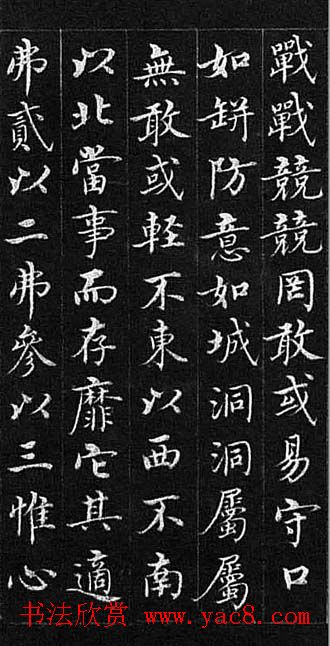 戰戰競競罔敢或易守口
如缾防意如城洞洞屬屬
無敢或輕不東以西不南
以北當事而存靡它其適
弗貳以二弗參以三惟心
书法欣赏 www.yac8.com